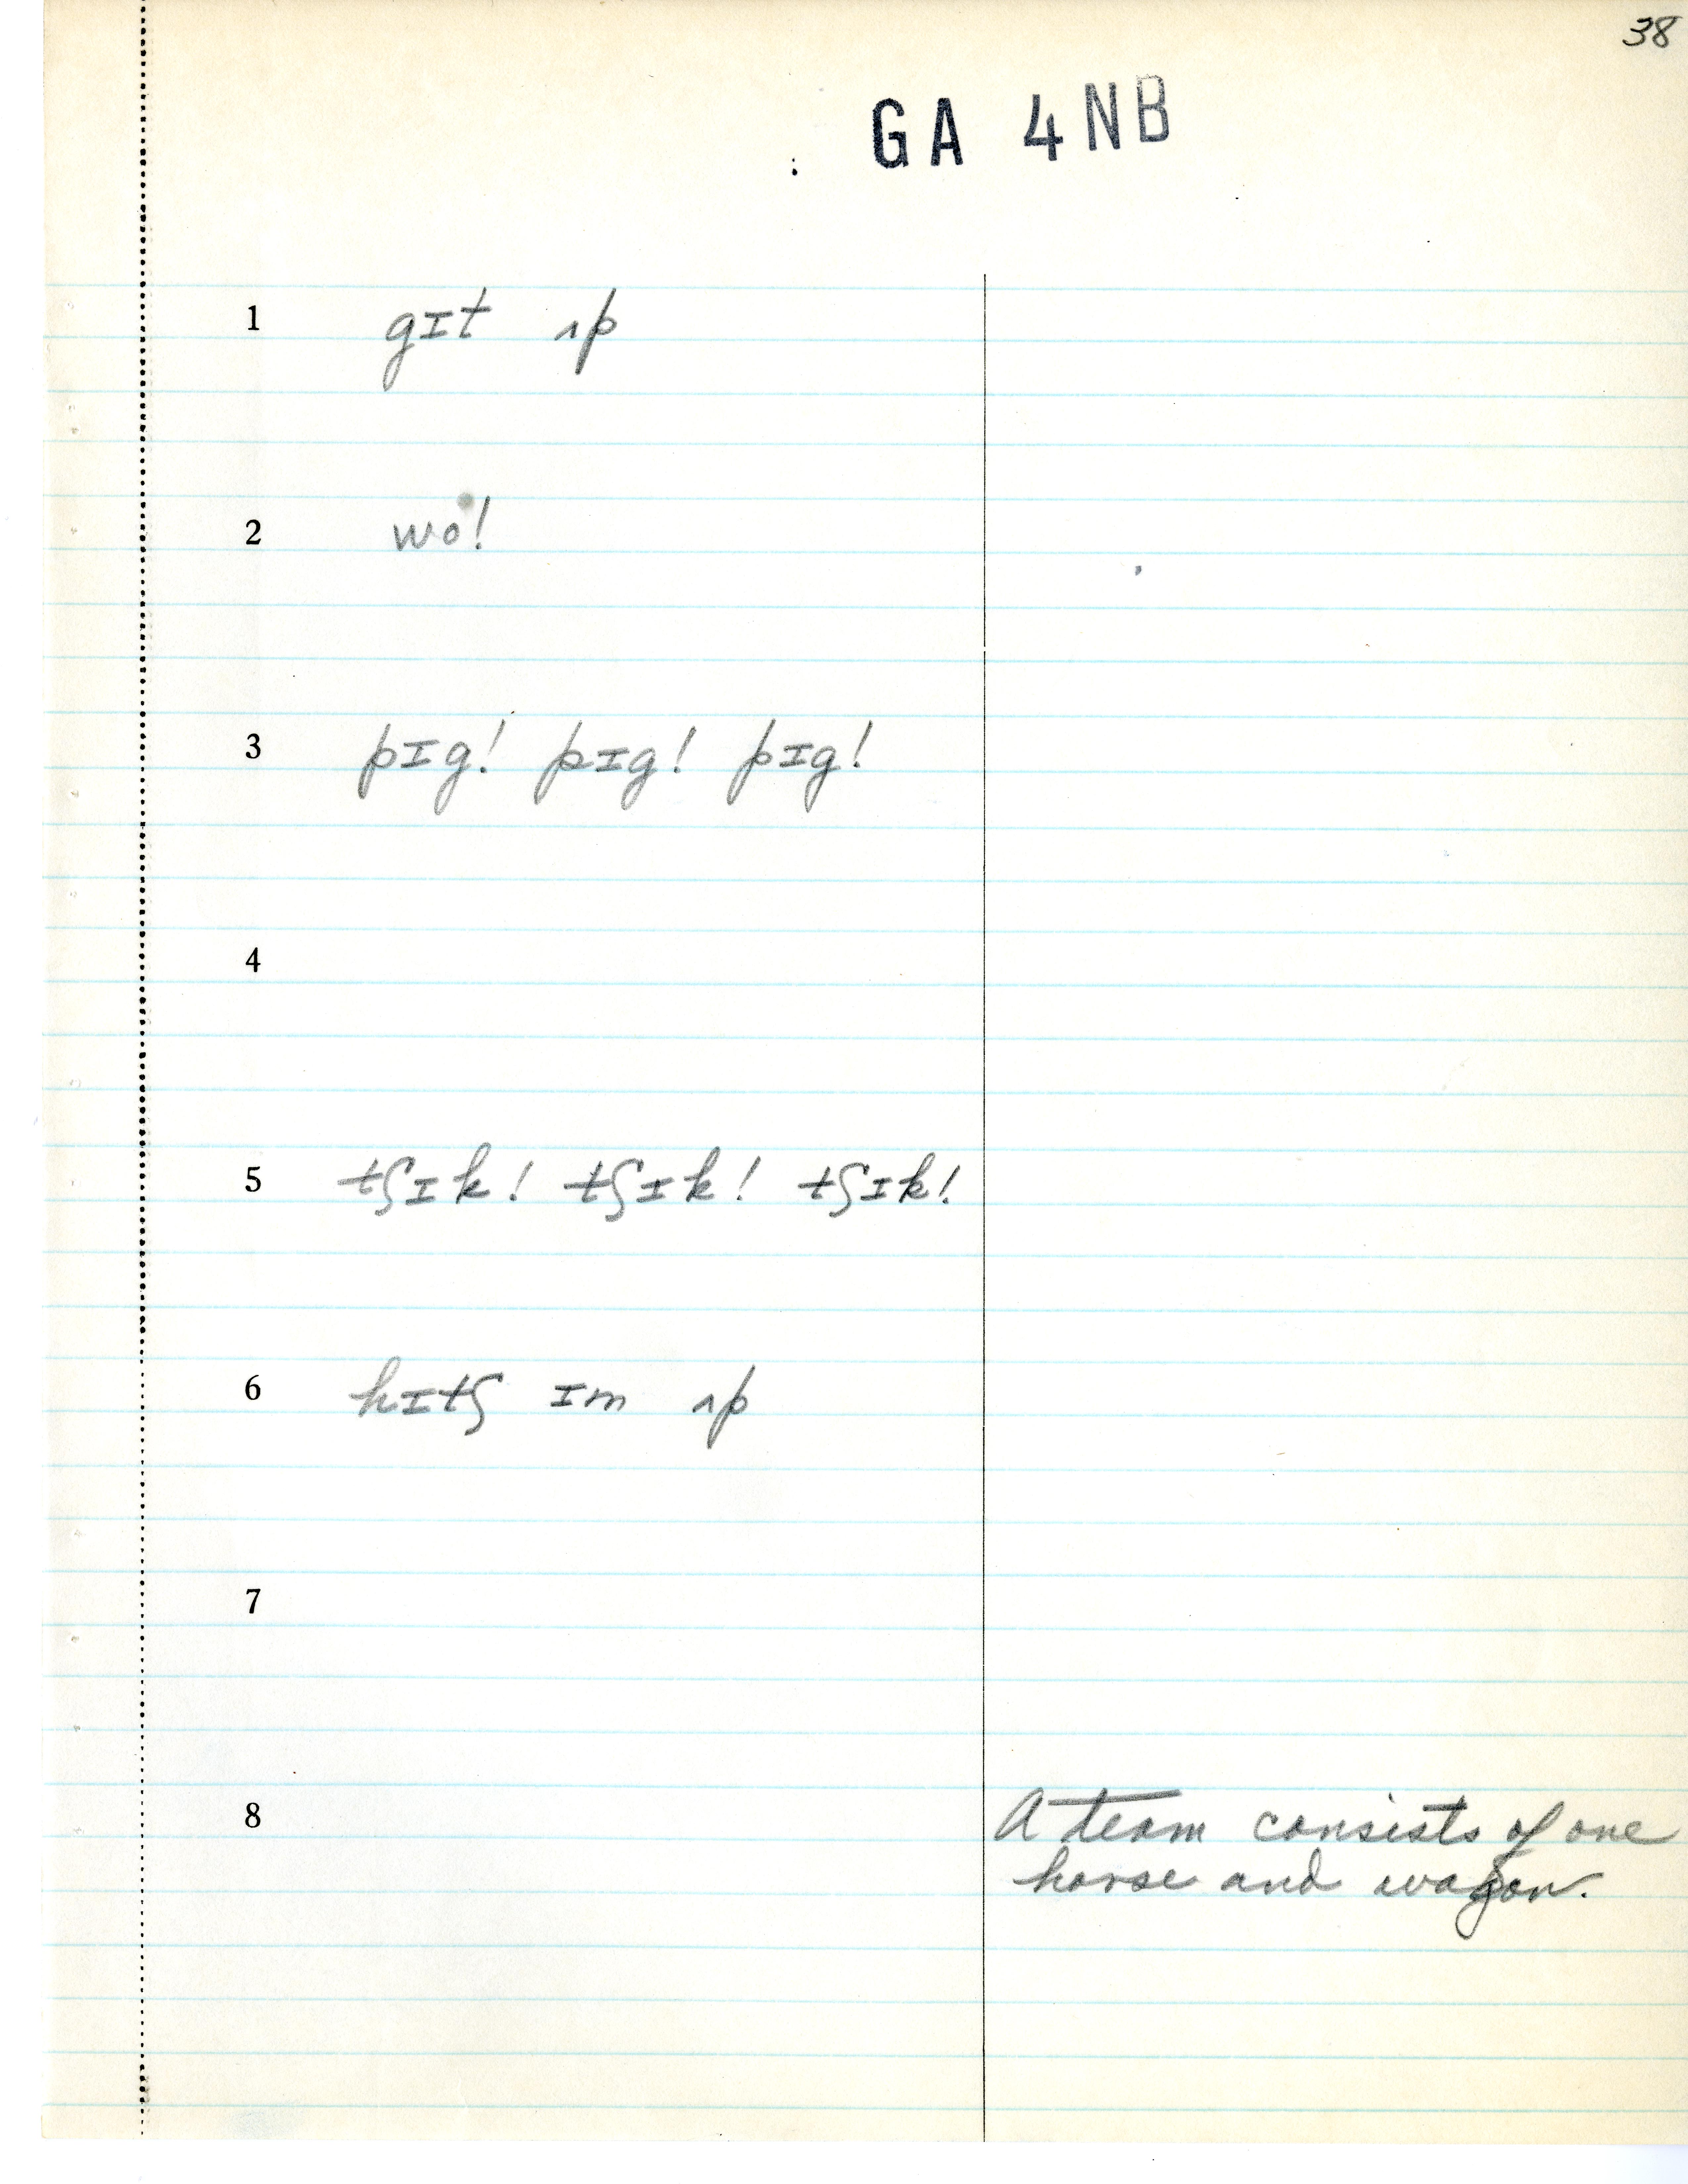 38
GA 4NB
1 gɪt ʌp
2 wo!
3 pɪg! pɪg! pɪg!
4
5 tʃɪk! tʃɪk! tʃɪk!
6 hɪtʃ ɪm ʌp
7
8 A team consists of one
horse and wagon.